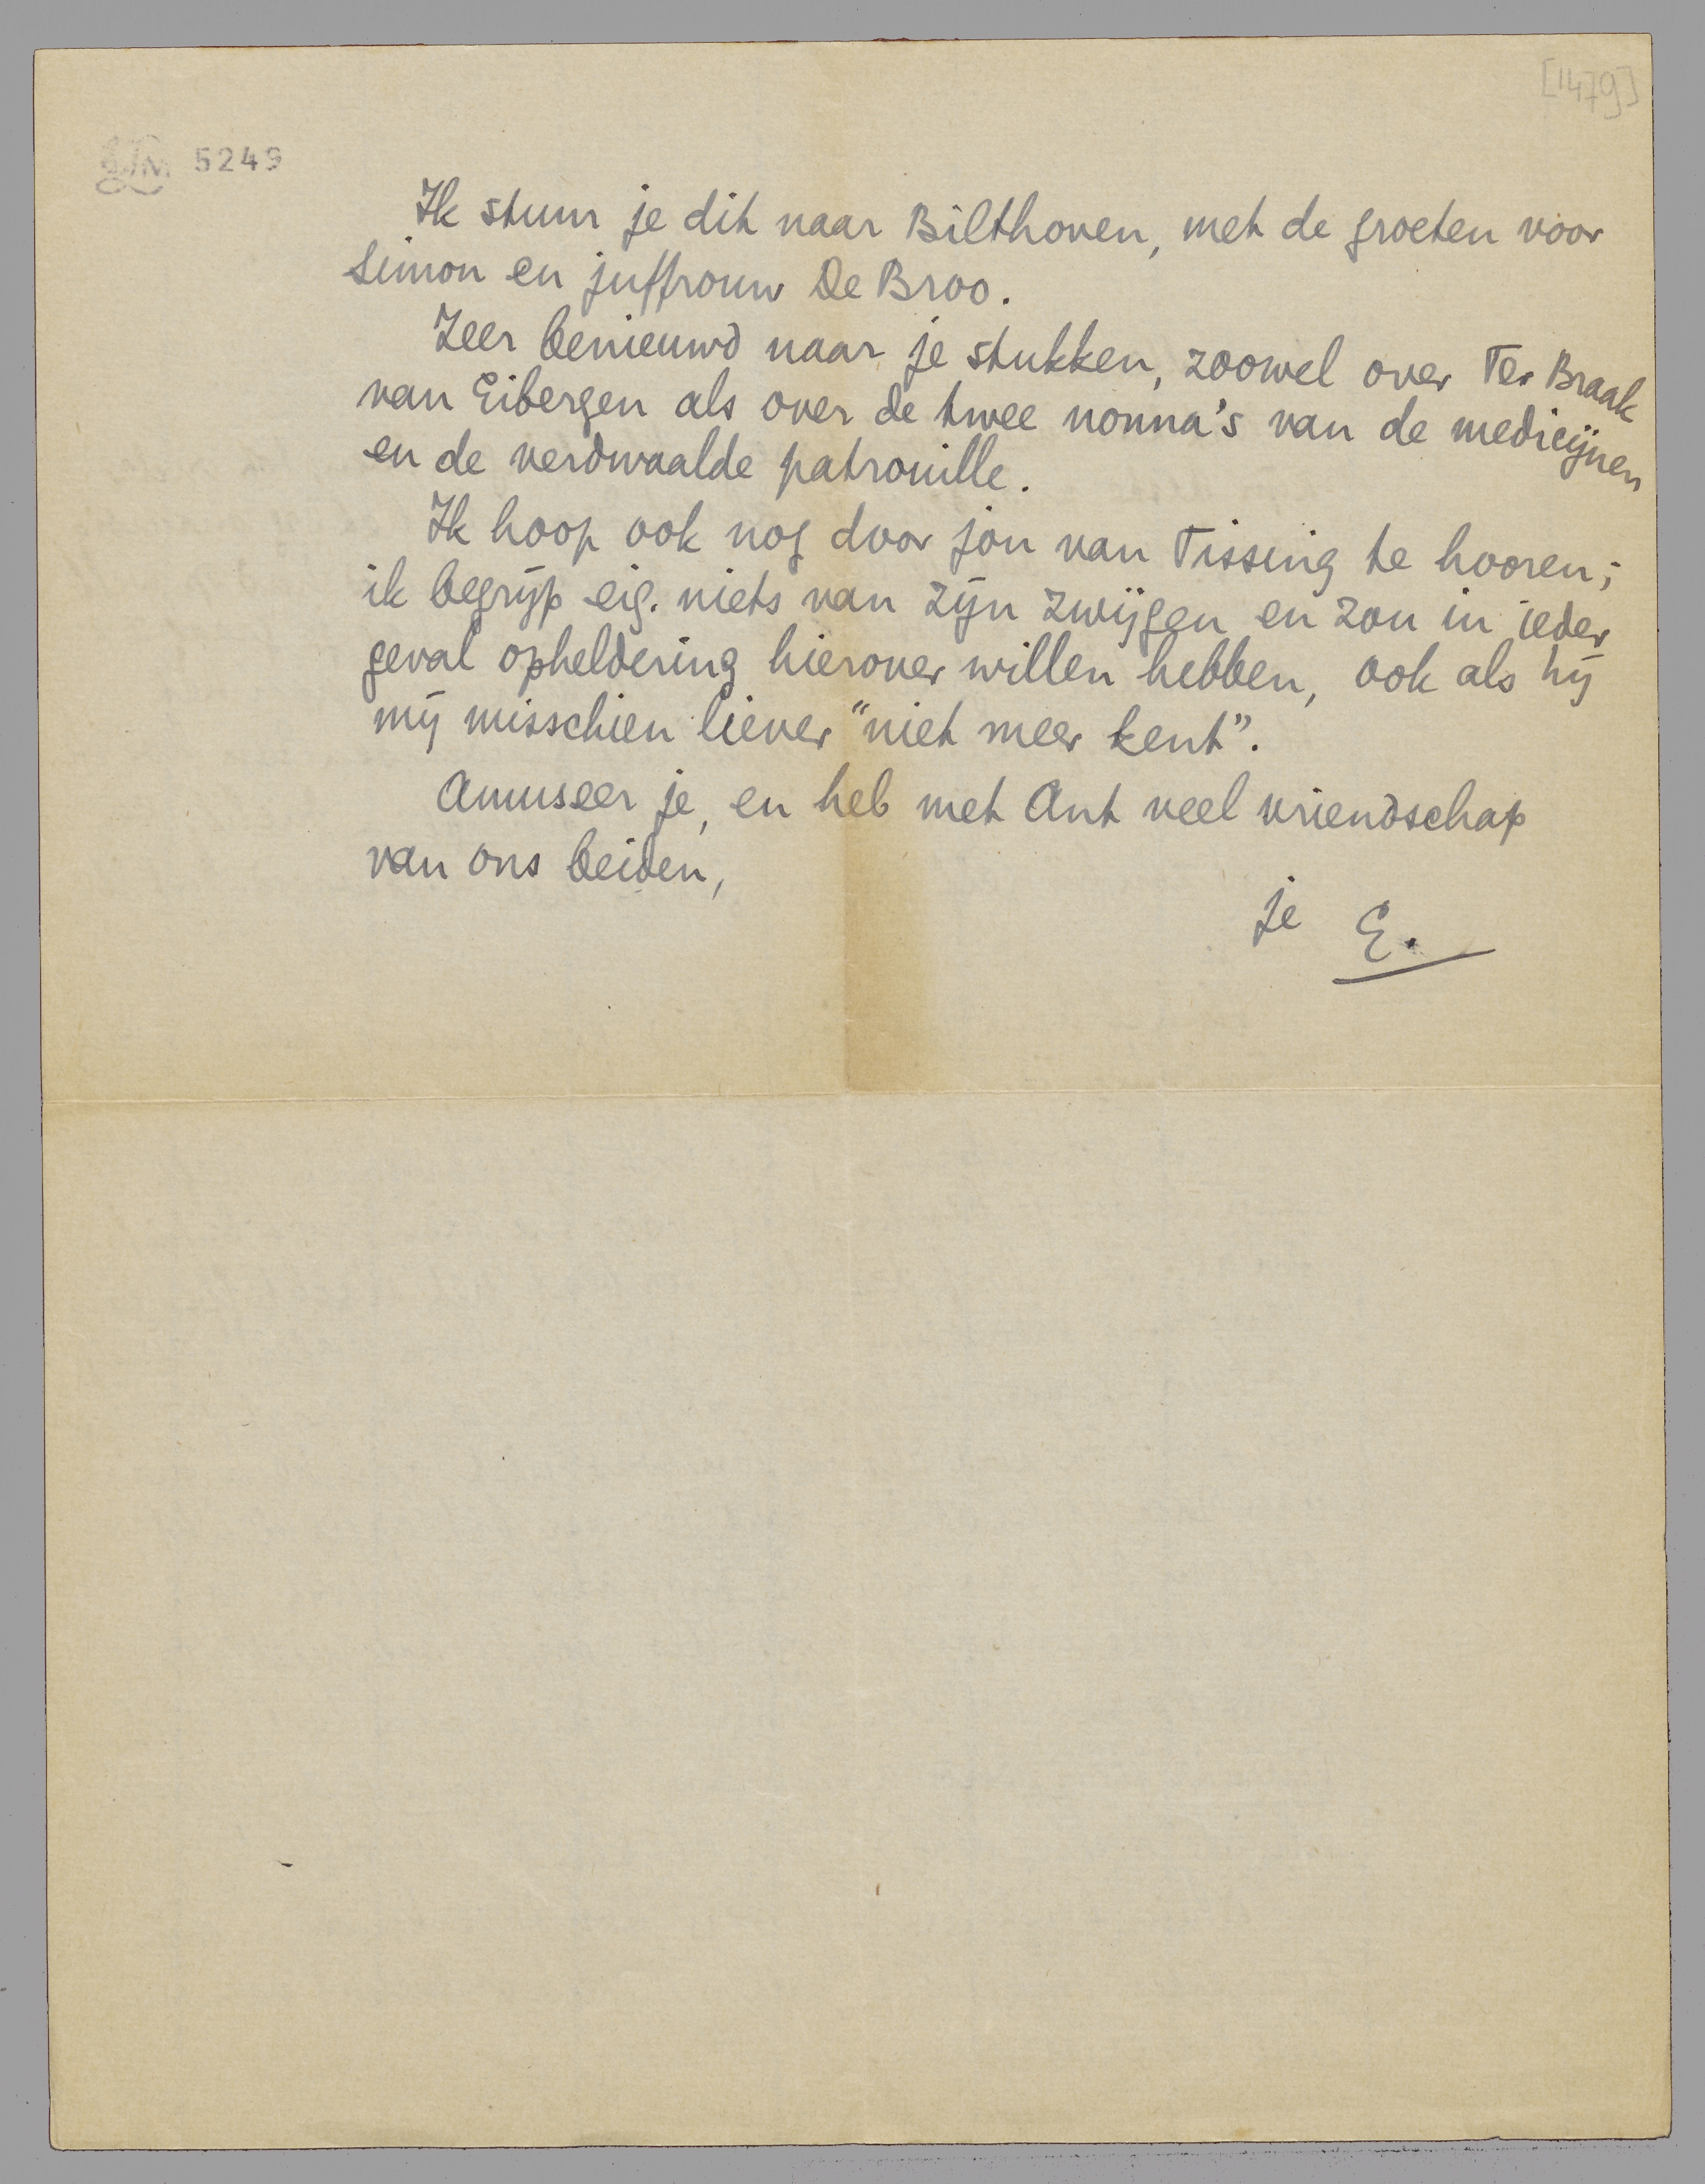 [1479]
LM 5249
Ik stuur je dit naar Bilthoven, met de groeten voor
Simon en juffrouw De Broo.
Zeer benieuwd naar je stukken, zoowel over Ter Braak
van Eibergen als over de twee nonna's van de medicijnen
en de verdwaalde patrouille.
Ik hoop ook nog door jou van Tissing te hooren;
ik begrijp eig. niets van zijn zwijgen en zou in ieder
geval opheldering hierover willen hebben, ook als hij
mij misschien liever "niet meer kent".
Amuseer je, en heb met Ant veel vriendschap
van ons beiden,
je E.